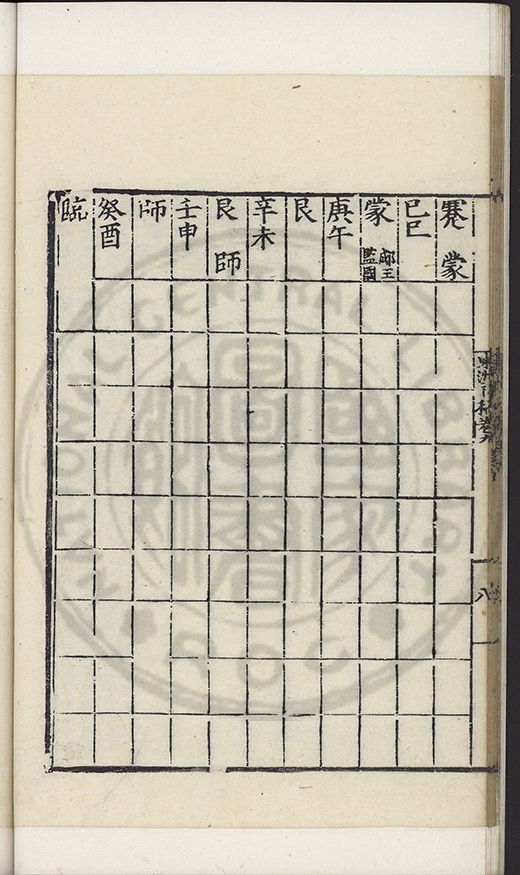 蹇 蒙
己巳
蒙 郕王監國
庚午
艮
辛未
艮 師
壬申
師
癸酉
臨
八
NATIONAL CENTRAL LIBRARY
R.O.C